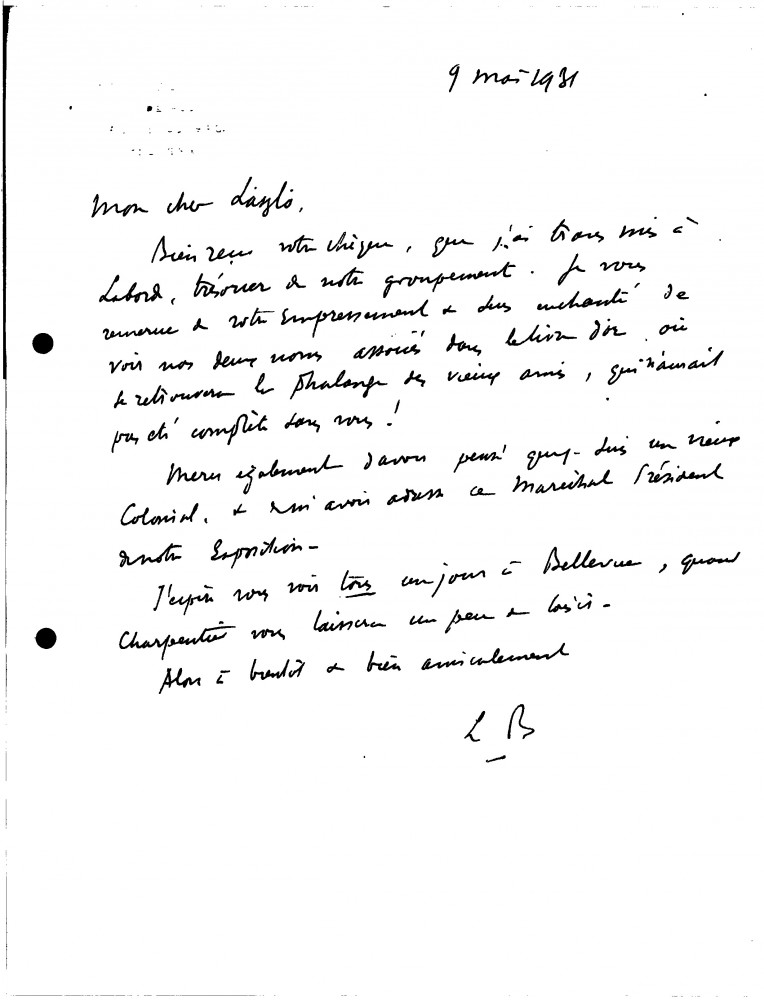 9 mai 1931
Mon cher László,
Bien reçu votre chèque, que j'ai transmis à
Labord, trésorier de notre groupement. Je vous
remercie de votre empressement & suis enchanté de
voir nos deux noms associés dans le livre d'or où
se retrouvera la phalange des vieux amis, qui n'aurait
pas été complète sans vous!
Merci également d'avoir pensé que je suis un vieux
Colonial, & de m'avoir adressé ce Maréchal Président
de notre Exposition -
J'espère vous voir tous un jour à Bellevue, quand
Charpentier vous laissera un peu de loisir -
Alors à bientôt & bien amicalement
L B